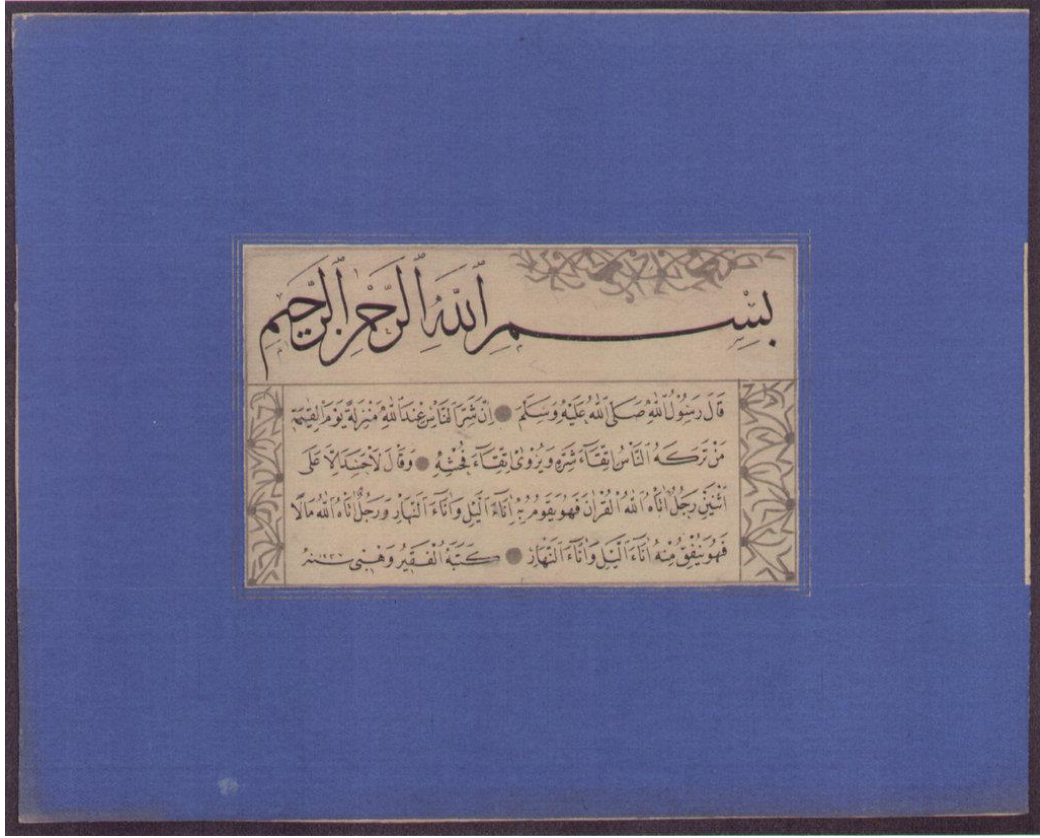 بِسْمِ اللّٰهِ الرَّحْمٰنِ الرَّحِيمِ
قَالَ رَسُولُ اللّٰهِ صَلَّى اللّٰهُ عَلَيْهِ وَسَلَّمَ اِنَّ شَرَّ النَّاسِ عِنْدَ اللّٰهِ مَنْزِلَةً يَوْمَ الْقِيٰمَةِ
مَنْ تَرَكَهُ النَّاسُ اتِّقَآءَ شَرِّهِ وَيُرْوٰى اتِّقَآءَ فُحْشِهِ وَقَالَ لَا حَسَدَ اِلَّا عَلٰى
اثْنَيْنِ رَجُلٌ اٰتَاهُ اللّٰهُ الْقُرْاٰنَ فَهُوَ يَقُومُ بِهِ اٰنَآءَ الَّيْلِ وَاٰنَآءَ النَّهَارِ وَرَجُلٌ اٰتَاهُ اللّٰهُ مَالًا
فَهُوَ يُنْفِقُ مِنْهُ اٰنَآءَ الَّيْلِ وَاٰنَآءَ النَّهَارِ كَتَبَهُ الْفَقِيرُ وَهْبِى سنه